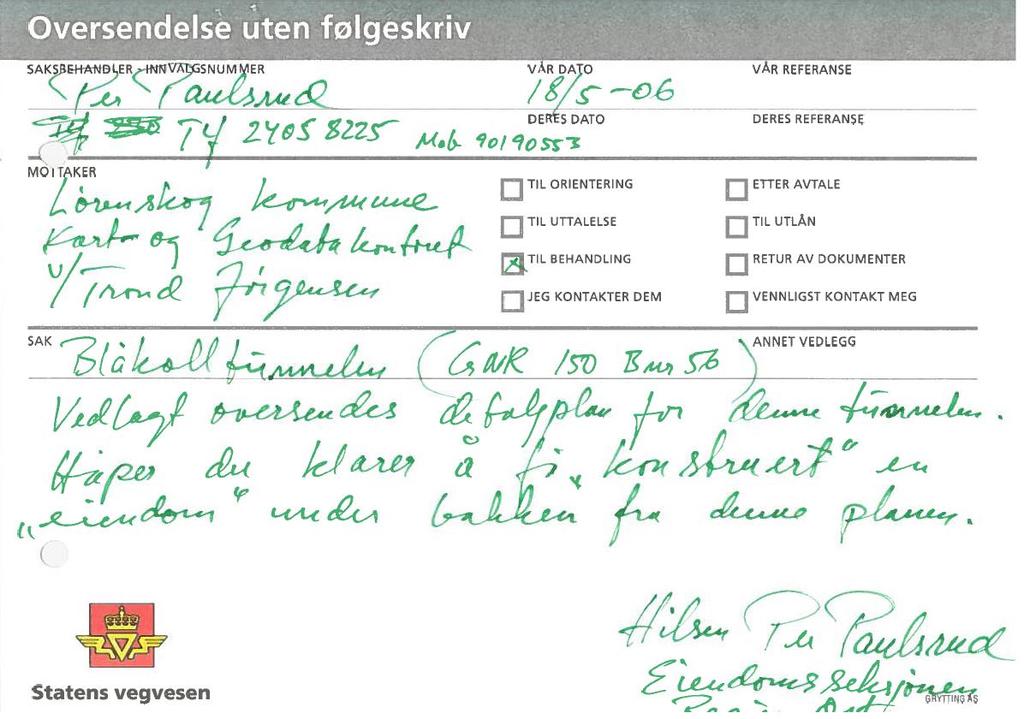 Oversendelse uten følgeskriv
SAKSBEHANDLER - INNVALGSNUMMER
Per Paulsrud
Tlf 2405 8225 Mob 90190553
VÅR DATO
18/5-06
VÅR REFERANSE
DERES DATO
DERES REFERANSE
MOTTAKER
Lørenskog kommune
Kart- og Geodatakontoret
v/Trond Jörgensen
TIL ORIENTERING
TIL UTTALELSE
TIL BEHANDLING
JEG KONTAKTER DEM
ETTER AVTALE
TIL UTLÅN
RETUR AV DOKUMENTER
VENNLIGST KONTAKT MEG
SAK
Blåkolltunnelen (GNR 150 Bnr 56)
ANNET VEDLEGG
Vedlagt oversendes detaljplan for denne tunnelen.
Håper du klarer å få „konstruert“ en
„eiendom“ under bakken fra denne planen.
Hilsen Per Paulsrud
Eiendomsseksjonen
Region Øst
Statens vegvesen
GRYTTING AS